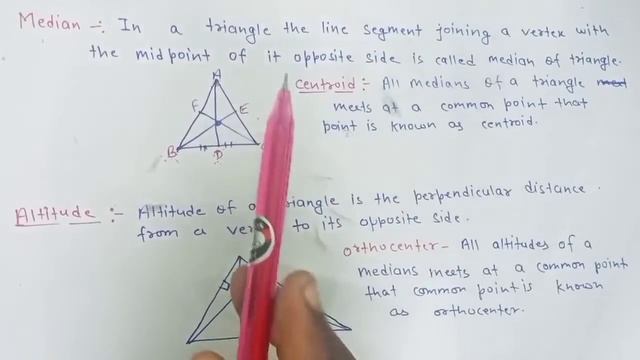 Median :- In a triangle the line segment joining a vertex with
the midpoint of it opposite side is called median of triangle.
Centroid :- All medians of a triangle
meets at a common point that
point is known as centroid.
A
F
E
B
D
Altitude :- Altitude of a triangle is the perpendicular distance.
from a to its opposite side.
Orthocenter - All altitudes of a
medians meets at a common point
that common point is known
as orthocenter.